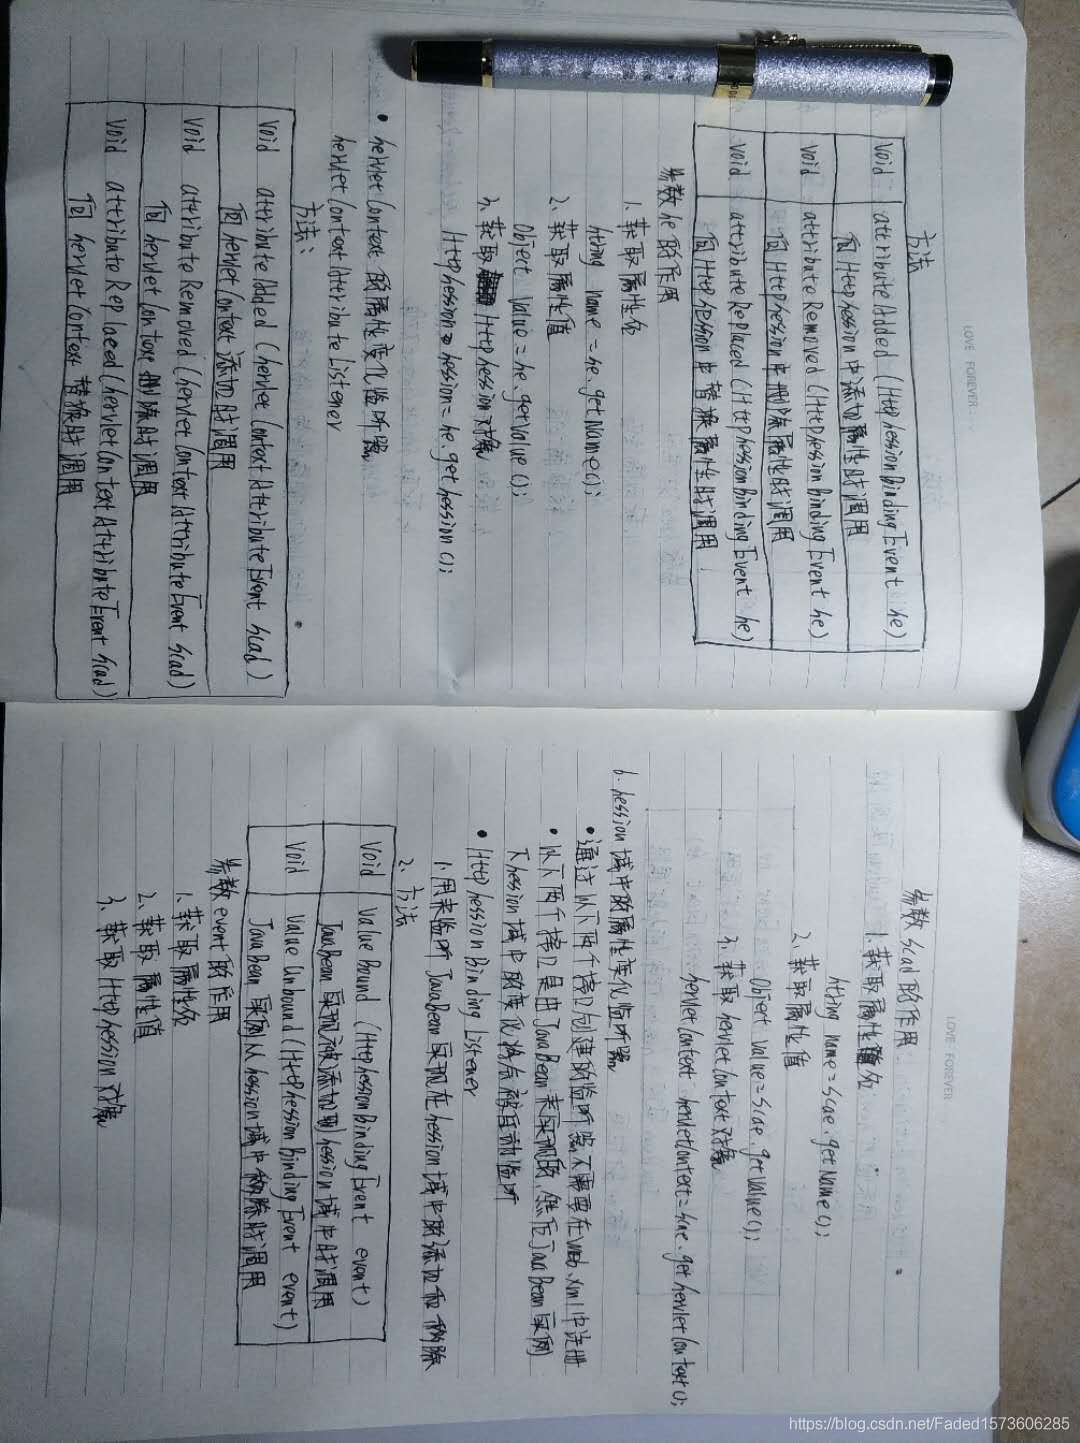 LOVE FOREVER
方法
void attributeAdded (HttpSessionBindingEvent he)
向HttpSession中添加属性时调用
void attributeRemoved (HttpSessionBindingEvent he)
向HttpSession中删除属性时调用
void attributeReplaced (HttpSessionBindingEvent he)
向HttpSession中替换属性时调用
参数he的作用
1. 获取属性名
String name = he.getName();
2. 获取属性值
Object value = he.getValue();
3. 获取HttpSession对象
HttpSession session = he.getSession();
• ServletContext的属性变化监听器
ServletContextAttributeListener
方法:
void attributeAdded (ServletContextAttributeEvent scad)
向ServletContext添加时调用
void attributeRemoved (ServletContextAttributeEvent scad)
向ServletContext删除时调用
void attributeReplaced (ServletContextAttributeEvent scad)
向ServletContext替换时调用
LOVE FOREVER
参数scad的作用
1. 获取属性名
String name = scae.getName();
2. 获取属性值
Object value = scae.getValue();
3. 获取ServletContext对象
ServletContext servletContext = scae.getServletContext();
6. Session域中的属性变化监听器
• 通过以下两个接口创建的监听器不需要在web.xml中注册
• 以下两个接口是由JavaBean来实现的,然后JavaBean实例
在Session域中的变化将会被自动监听
• HttpSessionBindingListener
1. 用来监听JavaBean实现在Session域中的添加和移除
2. 方法
void valueBound (HttpSessionBindingEvent event)
JavaBean实现被添加到Session域中时调用
void valueUnbound (HttpSessionBindingEvent event)
JavaBean实例从Session域中移除时调用
参数event的作用
1. 获取属性名
2. 获取属性值
3. 获取HttpSession对象
https://blog.csdn.net/Faded1573606285